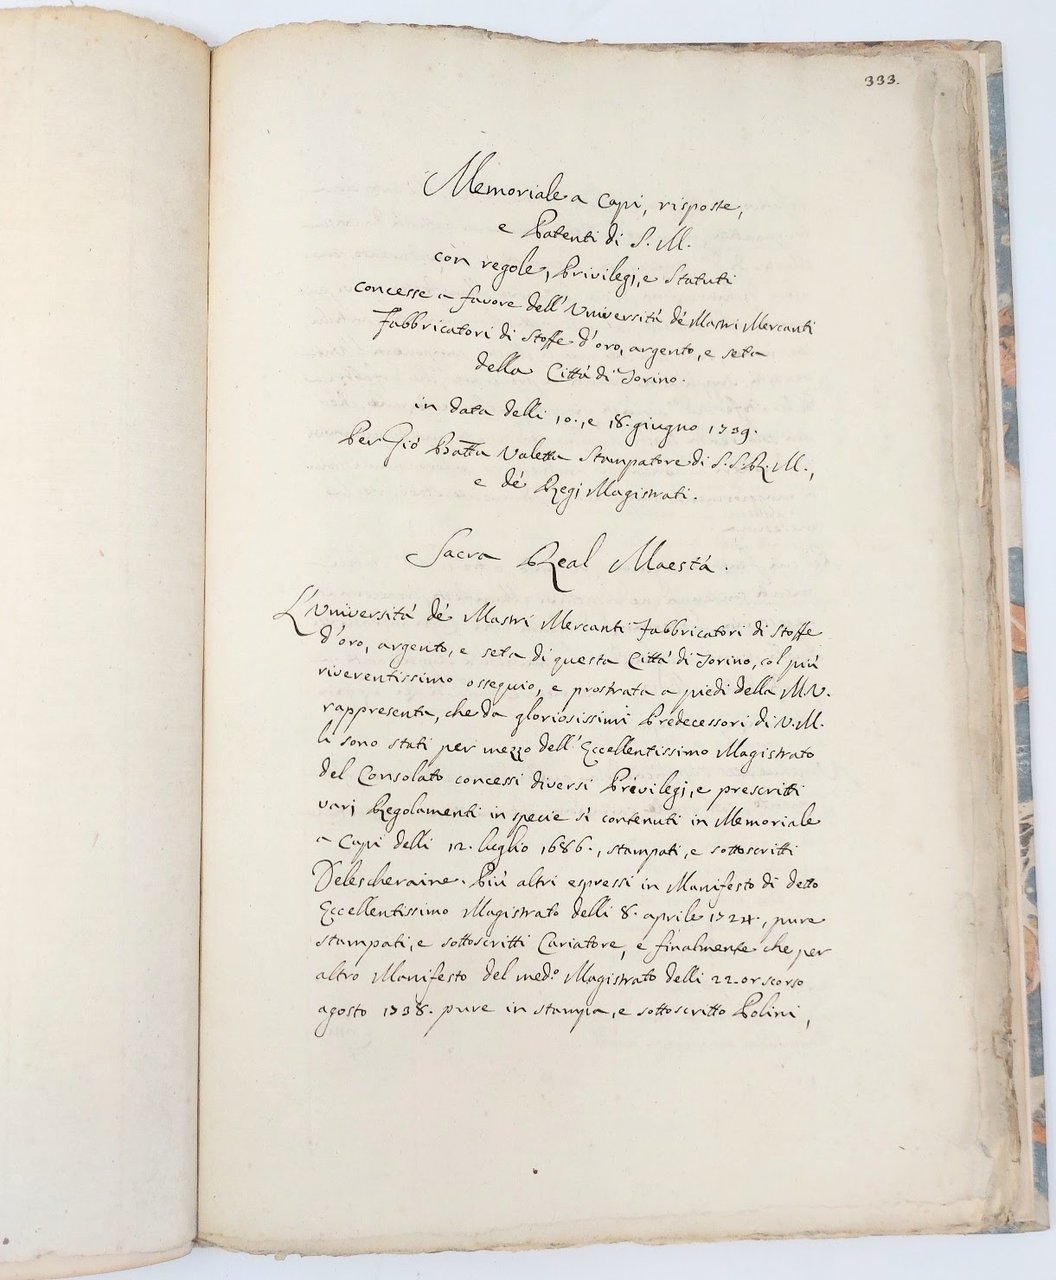 333.
Memoriale a Capi, risposte,
e Patenti di S. M.
con regole, Privilegj, e Statuti
concesse a favore dell'Università de' Mastri Mercanti
Fabbricatori di Stoffe d'oro, argento, e seta
della Città di Torino.
in data delli 10., e 18. giugno 1739.
Per Giò Batta Valetta Stampatore di S. S. R. M.,
e de' Regj Magistrati.
Sacra Real Maestà.
L'Università de' Mastri Mercanti Fabbricatori di Stoffe
d'oro, argento, e seta di questa Città di Torino, col più
riverentissimo ossequio, e prostrata a piedi della M. V.
rappresenta, che da gloriosissimi Predecessori di V. M.
li sono stati per mezzo dell'Eccellentissimo Magistrato
del Consolato concessi diversi Privilegj, e prescritti
varj Regolamenti in specie si contenuti in Memoriale
a Capi delli 12. luglio 1686., stampati, e sottoscritti
Delescheraine. Più altri espressi in Manifesto di detto
Eccellentissimo Magistrato delli 8. aprile 1724., pure
stampati, e sottoscritti Cariatore, e finalmente che per
altro Manifesto del med.o Magistrato delli 22. or scorso
agosto 1738. pure in stampa, e sottoscritto Polini,